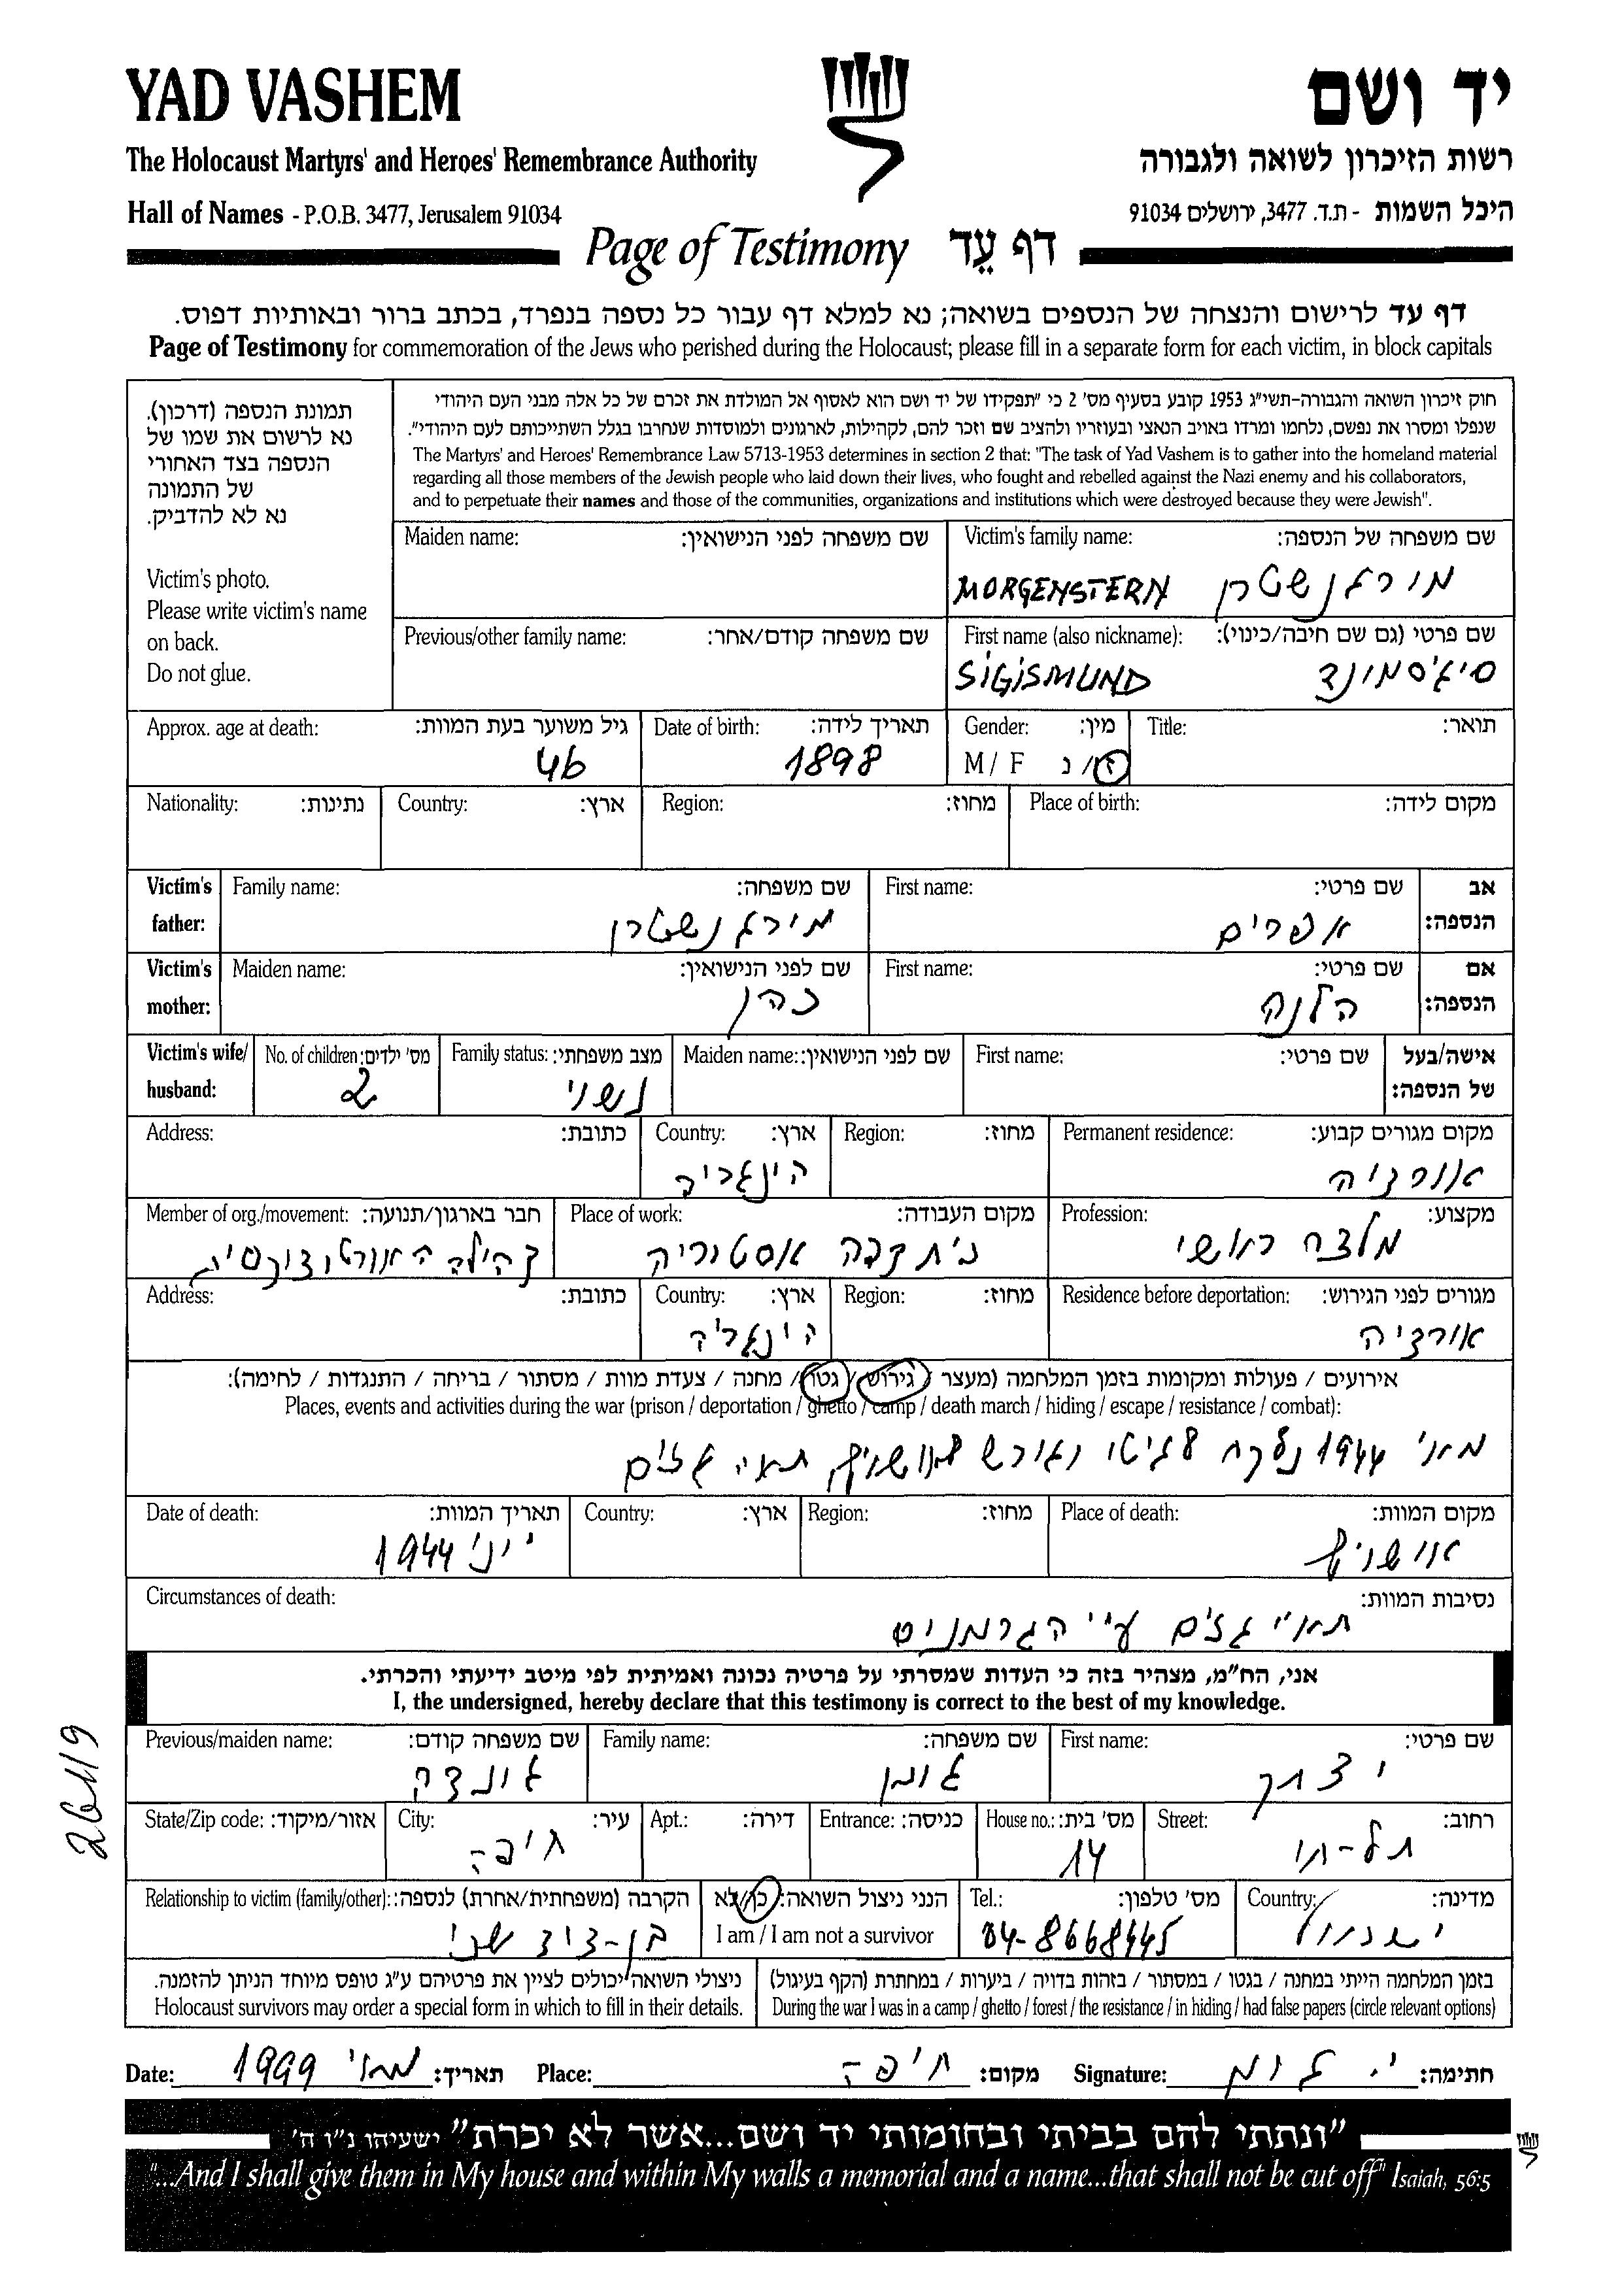 YAD VASHEM יד ושם
The Holocaust Martyrs' and Heroes' Remembrance Authority רשות הזיכרון לשואה ולגבורה
Hall of Names - P.O.B. 3477, Jerusalem 91034 היכל השמות - ת.ד. 3477, ירושלים 91034
Page of Testimony דף עֵד
דף עד לרישום והנצחה של הנספים בשואה; נא למלא דף עבור כל נספה בנפרד, בכתב ברור ובאותיות דפוס.
Page of Testimony for commemoration of the Jews who perished during the Holocaust; please fill in a separate form for each victim, in block capitals
תמונת הנספה (דרכון).
נא לרשום את שמו של
הנספה בצד האחורי
של התמונה
נא לא להדביק.
Victim's photo.
Please write victim's name
on back.
Do not glue.
חוק זיכרון השואה והגבורה-תשי"ג 1953 קובע בסעיף מס' 2 כי "תפקידו של יד ושם הוא לאסוף אל המולדת את זכרם של כל אלה מבני העם היהודי
שנפלו ומסרו את נפשם, נלחמו ומרדו באויב הנאצי ובעוזריו ולהציב שם וזכר להם, לקהילות, לארגונים ולמוסדות שנחרבו בגלל השתייכותם לעם היהודי".
The Martyrs' and Heroes' Remembrance Law 5713-1953 determines in section 2 that: "The task of Yad Vashem is to gather into the homeland material
regarding all those members of the Jewish people who laid down their lives, who fought and rebelled against the Nazi enemy and his collaborators,
and to perpetuate their names and those of the communities, organizations and institutions which were destroyed because they were Jewish".
Maiden name: שם משפחה לפני הנישואין: Victim's family name: שם משפחה של הנספה:
MORGENSTERN מורגנשטרן
Previous/other family name: שם משפחה קודם/אחר: First name (also nickname): שם פרטי (גם שם חיבה/כינוי):
SIGISMUND סיג'סמונד
Approx. age at death: גיל משוער בעת המוות: Date of birth: תאריך לידה: Gender: מין: Title: תואר:
46 1898 M / F ז/נ
Nationality: נתינות: Country: ארץ: Region: מחוז: Place of birth: מקום לידה:
Victim's father: Family name: שם משפחה: First name: שם פרטי: אב הנספה:
מורגנשטרן אפרים
Victim's mother: Maiden name: שם לפני הנישואין: First name: שם פרטי: אם הנספה:
כהן הלנה
Victim's wife/ husband: No. of children: מס' ילדים: Family status: מצב משפחתי: Maiden name: שם לפני הנישואין: First name: שם פרטי: אישה/בעל של הנספה:
2 נשוי
Address: כתובת: Country: ארץ: Region: מחוז: Permanent residence: מקום מגורים קבוע:
הינגריה אורדיה
Member of org./movement: חבר בארגון/תנועה: Place of work: מקום העבודה: Profession: מקצוע:
קהילה האורטודוקסית בית קפה אסטוריה מלצר ראשי
Address: כתובת: Country: ארץ: Region: מחוז: Residence before deportation: מגורים לפני הגירוש:
הינגריה אורדיה
אירועים / פעולות ומקומות בזמן המלחמה (מעצר / גירוש / גטו / מחנה / צעדת מוות / מסתור / בריחה / התנגדות / לחימה):
Places, events and activities during the war (prison / deportation / ghetto / camp / death march / hiding / escape / resistance / combat):
מאי 1944 נלקח לגיטו וגורש לאושויץ תאי גזים
Date of death: תאריך המוות: Country: ארץ: Region: מחוז: Place of death: מקום המוות:
יוני 1944 אושויץ
Circumstances of death: נסיבות המוות:
תאי גזים ע"י הגרמנים
אני, הח"מ, מצהיר בזה כי העדות שמסרתי על פרטיה נכונה ואמיתית לפי מיטב ידיעתי והכרתי.
I, the undersigned, hereby declare that this testimony is correct to the best of my knowledge.
Previous/maiden name: שם משפחה קודם: Family name: שם משפחה: First name: שם פרטי:
יצחק
State/Zip code: אזור/מיקוד: City: עיר: Apt.: דירה: Entrance: כניסה: House no.: מס' בית: Street: רחוב:
חיפה 14 תל-חי
Relationship to victim (family/other): הקרבה (משפחתית/אחרת) לנספה: הנני ניצול השואה: כן/לא Tel.: מס' טלפון: Country: מדינה:
בן-דוד שני I am / I am not a survivor 04-8668445 ישראל
ניצולי השואה יכולים לציין את פרטיהם ע"ג טופס מיוחד הניתן להזמנה. בזמן המלחמה הייתי במחנה / בגטו / במסתור / בזהות בדויה / ביערות / במחתרת (הקף בעיגול)
Holocaust survivors may order a special form in which to fill in their details. During the war I was in a camp / ghetto / forest / the resistance / in hiding / had false papers (circle relevant options)
Date: מאי 1999 תאריך: Place: חיפה מקום: Signature: חתימה:
"ונתתי להם בביתי ובחומותי יד ושם...אשר לא יכרת" ישעיהו נ"ו ה'
"...And I shall give them in My house and within My walls a memorial and a name...that shall not be cut off" Isaiah, 56:5